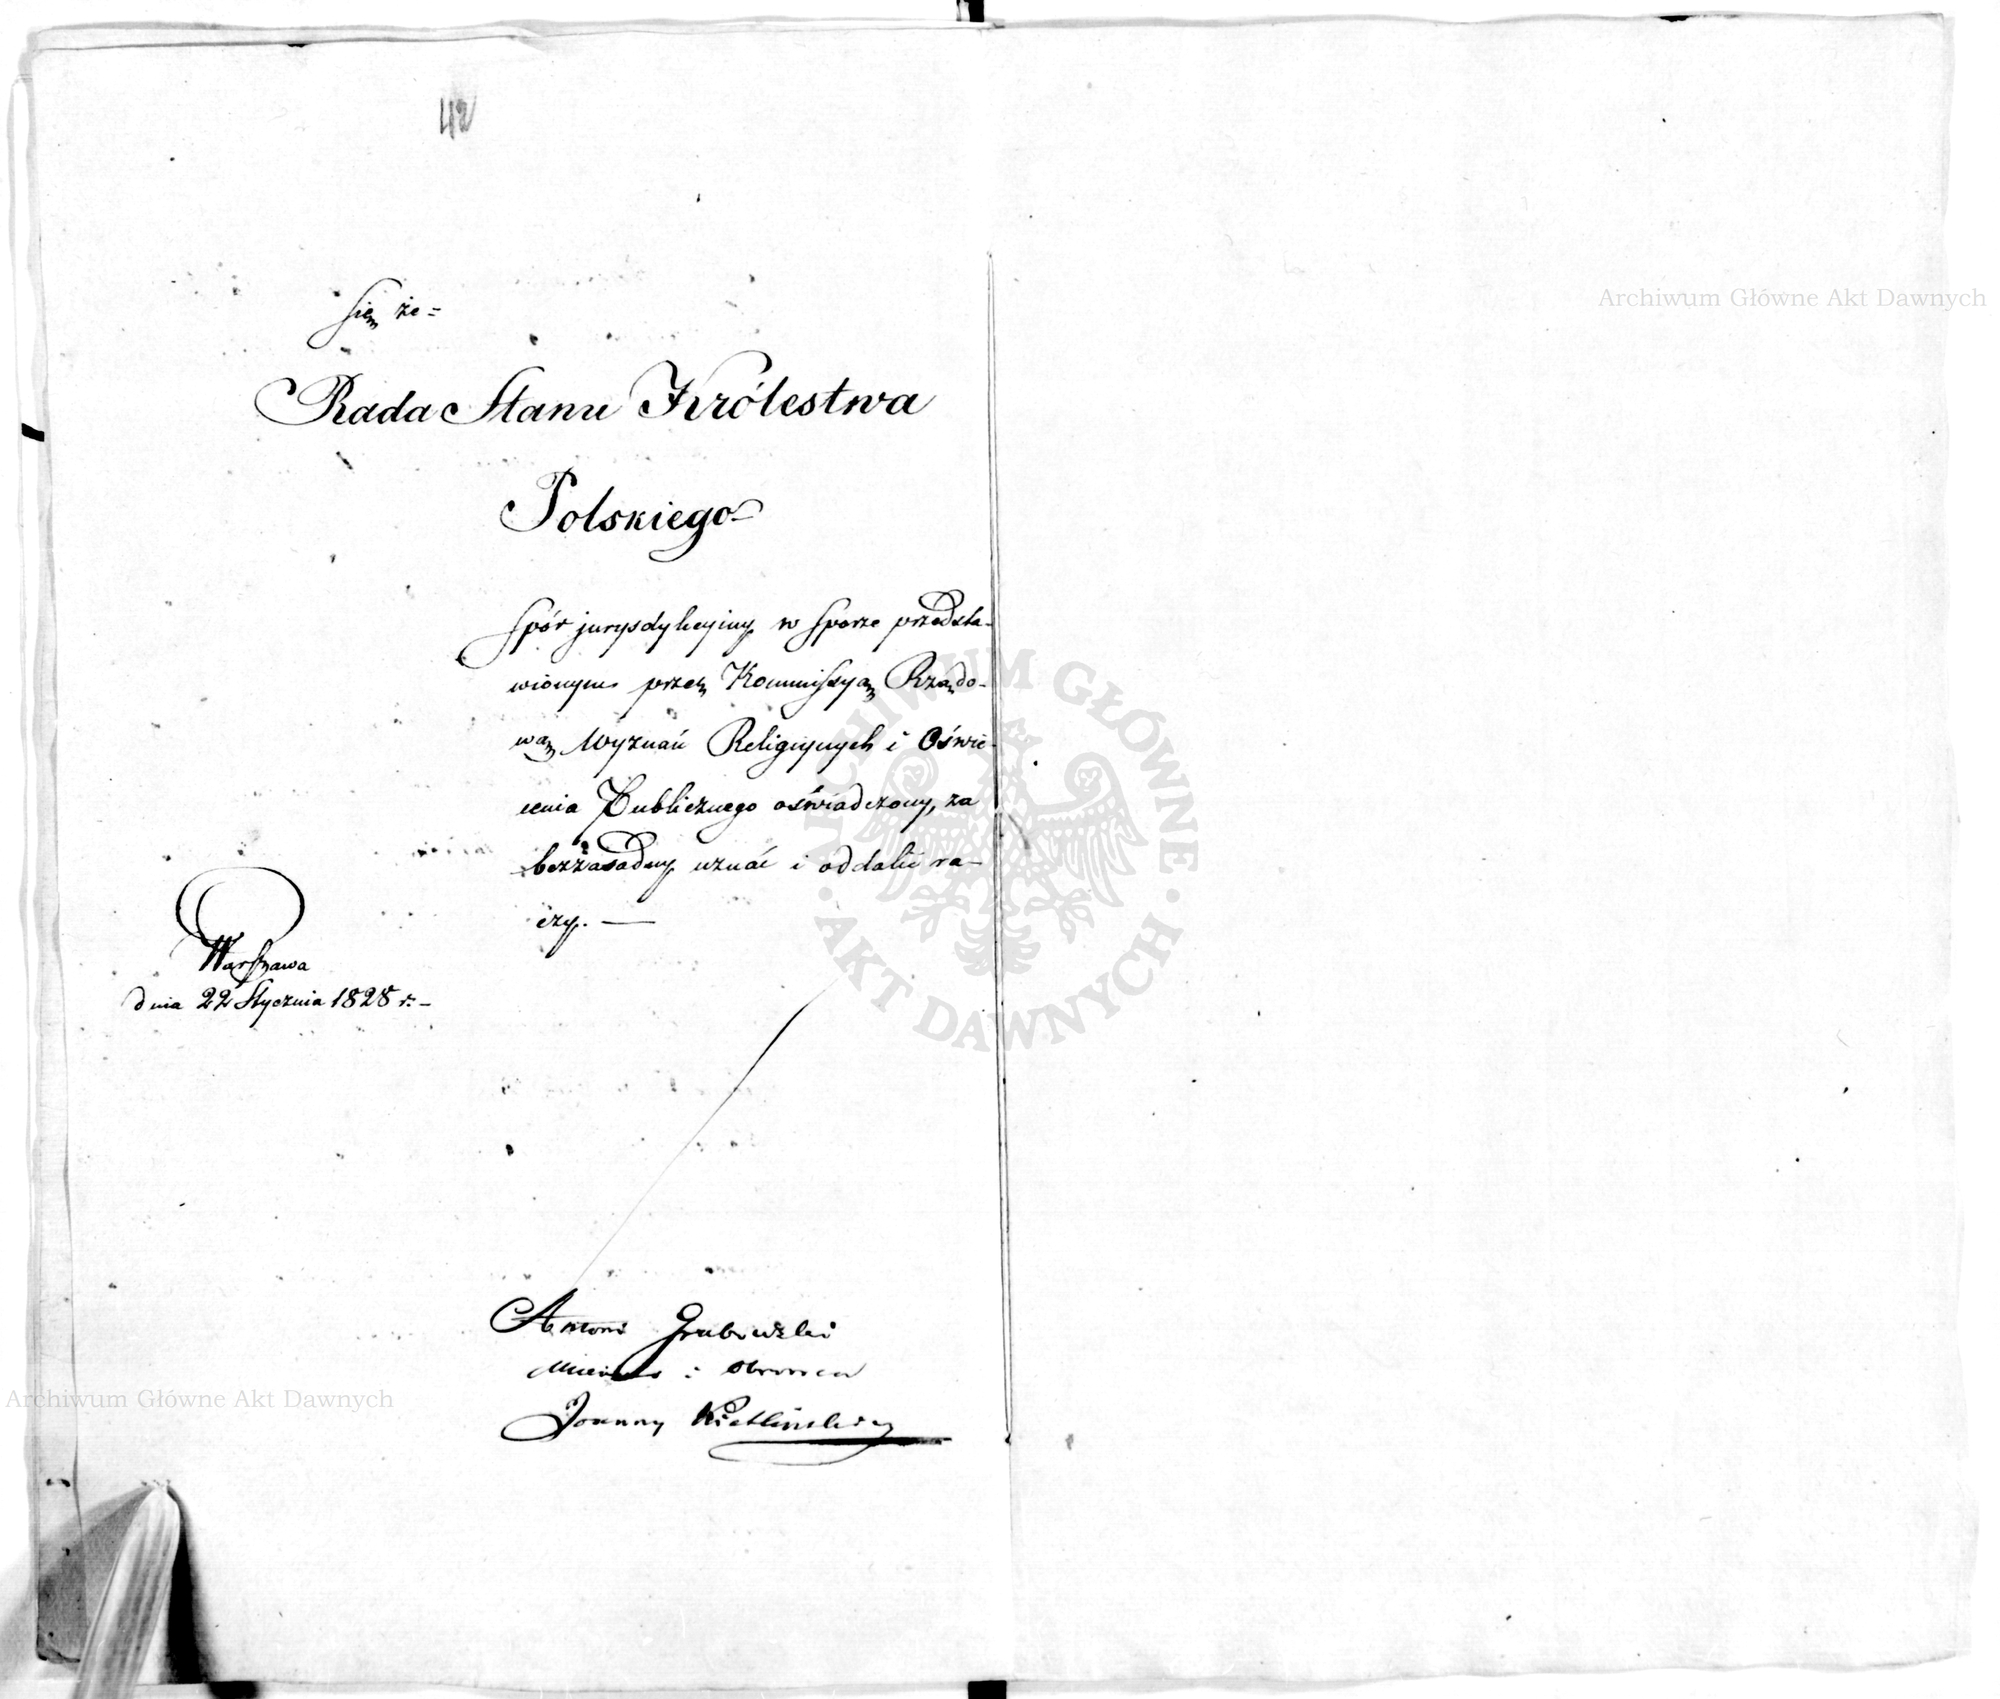 42
się że=
Rada Stanu Królestwa
Polskiego
Spór jurysdykcyiny w sporze przedsta-
wionym przez Kommissyą Rządo-
wą Wyznań Religiynych i Oświe-
cenia Publicznego oświadczony, za
bezzasadny uznać i oddalić ra-
czy. —
Warszawa
dnia 22 Stycznia 1828 r. –
Antoni Grabowski
i obrońca
Joanny Kietlińskiey
Archiwum Główne Akt Dawnych
ARCHIWUM GŁÓWNE
AKT DAWNYCH
Archiwum Główne Akt Dawnych